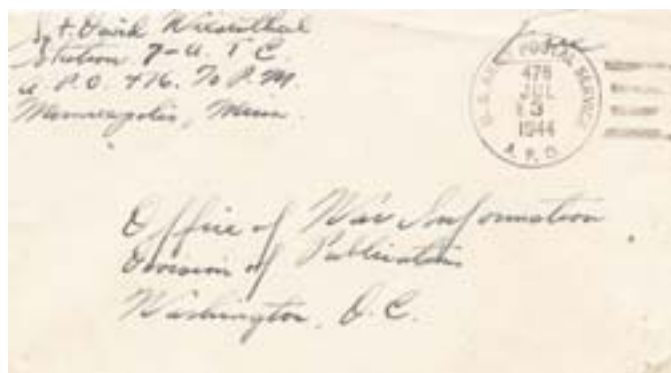 Sgt. David Wiesenthal
Station 7-U. T C.
A.P.O. 716. To P.M.
Minneapolis, Minn.
Free
U.S. ARMY POSTAL SERVICE
JUL
3
1944
A. P. O.
Office of War Information
Division of Publication
Washington, D.C.